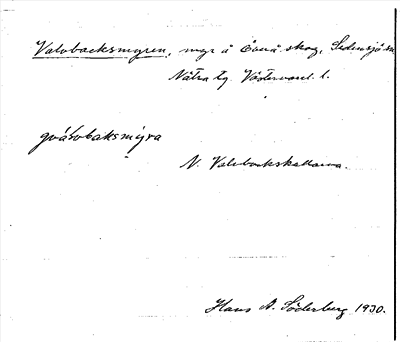 Valvbacksmyren, myr å Övvå skog, Sidensjö sn
Nätra tg. Västernorrl. l.
gválvbaksmýra
N. Valvbackskallarna.
Hans A. Söderberg 1930.